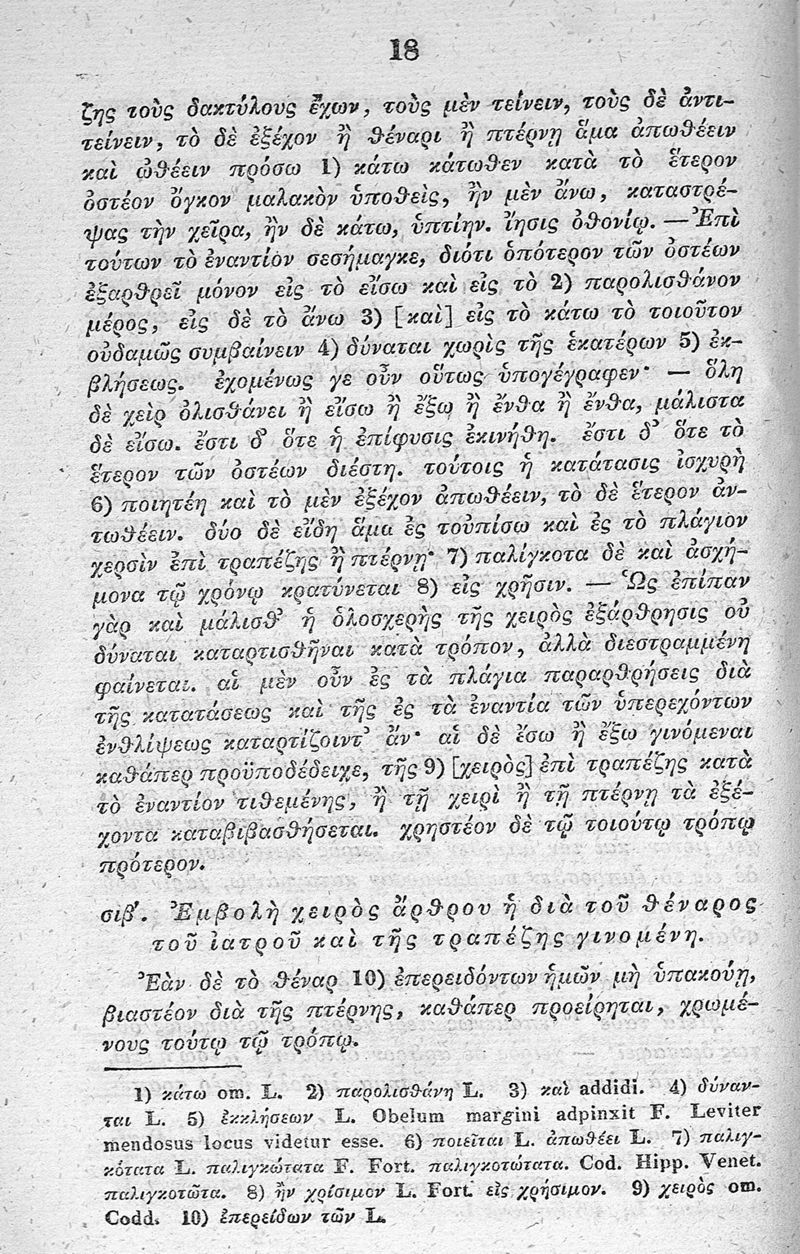 18
ζης τοὺς δακτύλους ἔχων, τοὺς μὲν τείνειν, τοὺς δὲ ἀντι-
τείνειν, τὸ δὲ ἐξέχον ἢ θέναρι ἢ πτέρνῃ ἅμα ἀπωθέειν
καὶ ὠθέειν πρόσω 1) κάτω κάτωθεν κατὰ τὸ ἕτερον
ὀστέον ὄγκον μαλακὸν ὑποθεὶς, ἢν μὲν ἄνω, καταστρέ-
ψας τὴν χεῖρα, ἢν δὲ κάτω, ὑπτίην. ἴησις ὀθονίῳ. — Ἐπὶ
τούτων τὸ ἐναντίον σεσήμαγκε, διότι ὁπότερον τῶν ὀστέων
ἐξαρθρεῖ μόνον εἰς τὸ εἴσω καὶ εἰς τὸ 2) παρολισθάνον
μέρος, εἰς δὲ τὸ ἄνω 3) [καὶ] εἰς τὸ κάτω τὸ τοιοῦτον
οὐδαμῶς συμβαίνειν 4) δύναται χωρὶς τῆς ἑκατέρων 5) ἐκ-
βλήσεως. ἐχομένως γε οὖν οὕτως ὑπογέγραφεν· — ὅλη
δὲ χεὶρ ὀλισθάνει ἢ εἴσω ἢ ἔξω ἢ ἔνθα ἢ ἔνθα, μάλιστα
δὲ εἴσω. ἔστι δ' ὅτε ἡ ἐπίφυσις ἐκινήθη. ἔστι δ' ὅτε τὸ
ἕτερον τῶν ὀστέων διέστη. τούτοις ἡ κατάτασις ἰσχυρὴ
6) ποιητέη καὶ τὸ μὲν ἐξέχον ἀπωθέειν, τὸ δὲ ἕτερον ἀν-
τωθέειν. δύο δὲ εἴδη ἅμα ἐς τοὐπίσω καὶ ἐς τὸ πλάγιον
χερσὶν ἐπὶ τραπέζης ἢ πτέρνῃ· 7) παλίγκοτα δὲ καὶ ἀσχή-
μονα τῷ χρόνῳ κρατύνεται 8) εἰς χρῆσιν. — Ὡς ἐπίπαν
γὰρ καὶ μάλισθ' ἡ ὁλοσχερὴς τῆς χειρὸς ἐξάρθρησις οὐ
δύναται καταρτισθῆναι κατὰ τρόπον, ἀλλὰ διεστραμμένη
φαίνεται. αἱ μὲν οὖν ἐς τὰ πλάγια παραρθρήσεις διὰ
τῆς κατατάσεως καὶ τῆς ἐς τὰ ἐναντία τῶν ὑπερεχόντων
ἐνθλίψεως καταρτίζοιντ' ἄν· αἱ δὲ ἔσω ἢ ἔξω γινόμεναι
καθάπερ προϋποδέδειχε, τῆς 9) [χειρὸς] ἐπὶ τραπέζης κατὰ
τὸ ἐναντίον τιθεμένης, ἢ τῇ χειρὶ ἢ τῇ πτέρνῃ τὰ ἐξέ-
χοντα καταβιβασθήσεται. χρηστέον δὲ τῷ τοιούτῳ τρόπῳ
πρότερον.
σιβ'. Ἐμβολὴ χειρὸς ἄρθρου ἡ διὰ τοῦ θέναρος
τοῦ ἰατροῦ καὶ τῆς τραπέζης γινομένη.
Ἐὰν δὲ τὸ θέναρ 10) ἐπερειδόντων ἡμῶν μὴ ὑπακούῃ,
βιαστέον διὰ τῆς πτέρνης, καθάπερ προείρηται, χρωμέ-
νους τούτῳ τῷ τρόπῳ.
1) κάτω om. L. 2) παρολισθάνῃ L. 3) καὶ addidi. 4) δύναν-
ται L. 5) ἐκκλήσεων L. Obelum margini adpinxit F. Leviter
mendosus locus videtur esse. 6) ποιεῖται L. ἀπωθέει L. 7) παλιγ-
κότατα L. παλιγκώτατα F. Fort. παλιγκοτώτατα. Cod. Hipp. Venet.
παλιγκοτῶτα. 8) ἢν χρίσιμον L. Fort. εἰς χρήσιμον. 9) χειρὸς om.
Codd. 10) ἐπερείδων τῶν L.